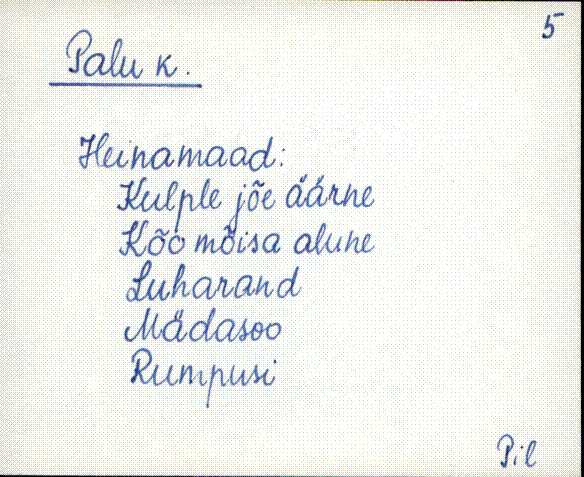 5
Palu k.
Heinamaad:
Kulple jõe äärne
Kõo mõisa alune
Luharand
Mädasoo
Rumpusi
Pil